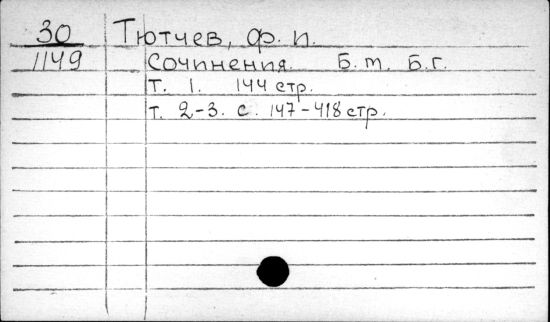 30 Тютчев, Ф. п.
1149 Сочинения. Б. т. Б. г.
Т. 1. 144 стр.
Т. 2-3. С. 147-418 стр.